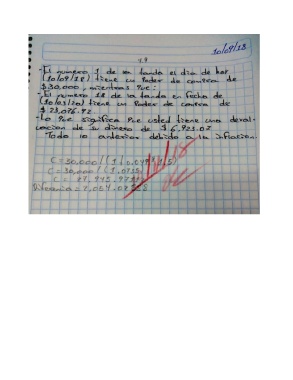 10/09/18
1.9
-El numero 1 de la tanda es dia de hoy
(10/09/18) tiene un Poder de compra de
$30,000, mientras Que:
-El numero 18 de la tanda en fecha de
(10/03/20) tiene un Poder de compra de
$23,076.92
-Lo Que significa Que usted tiene una deval-
uacion de su dinero de $6,923.07
Todo lo anterior debido a la inflacion.
C = 30,000/(1
C = 30,000/(1.0735
C = 27,945.97